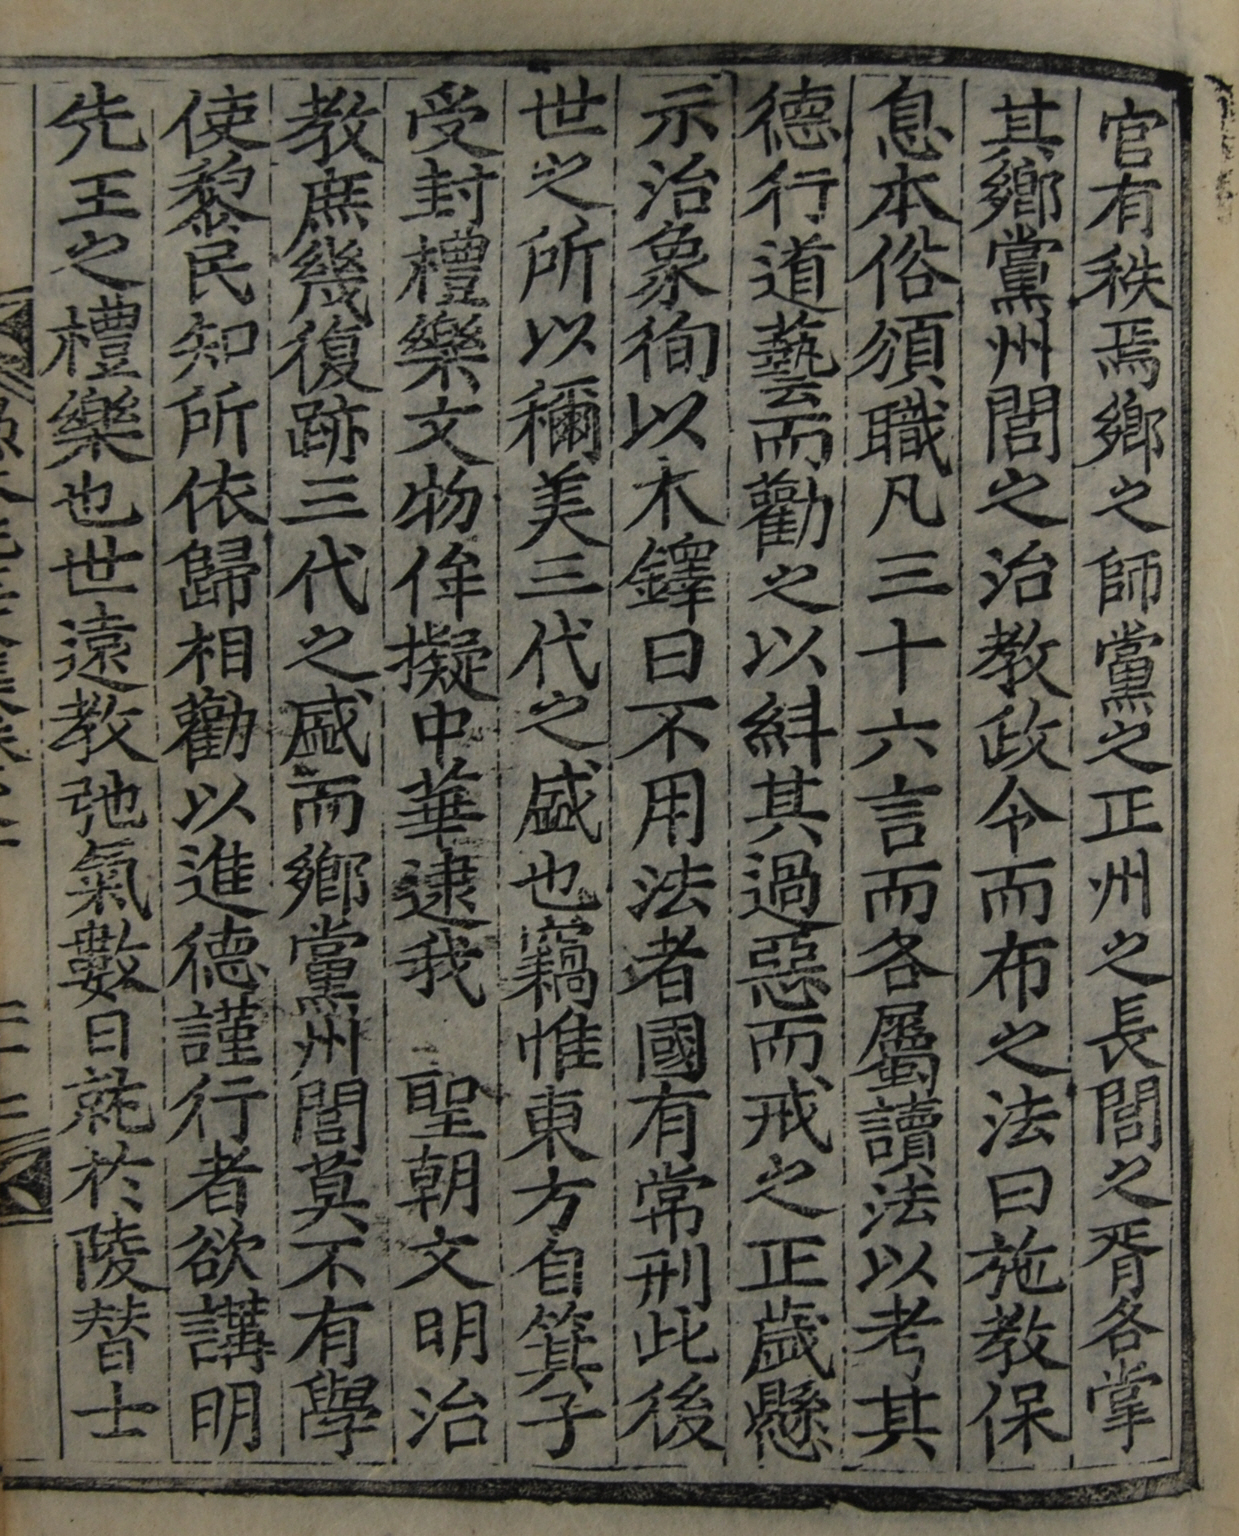 官有秩焉鄉之師黨之正州之長閭之胥各掌
其鄉黨州閭之治教政令而布之法曰施教保
息本俗頒職凡三十六言而各屬讀法以考其
德行道藝而勸之以糾其過惡而戒之正歲懸
示治象徇以木鐸曰不用法者國有常刑此後
世之所以稱美三代之盛也竊惟東方自箕子
受封禮樂文物侔擬中華逮我 聖朝文明治
教庶幾復跡三代之盛而鄉黨州閭莫不有學
使黎民知所依歸相勸以進德謹行者欲講明
先王之禮樂也世遠教弛氣數日就於陵替士